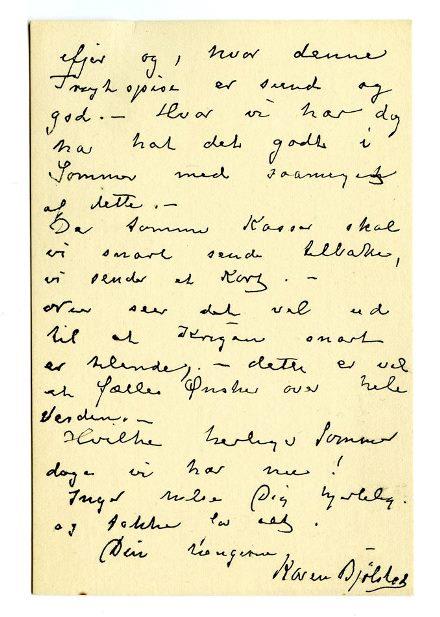 efter og, hvor denne
Frugt spise er sund og
god. – Hvor vi har dog
har hat det godt i
Sommer med saameget
af dette. –
De tomme Kasser skal
vi snart sende tilbake,
vi sender et Kort. –
seer det vel ud
til at Krigen snart
er tilende, – dette er vel
et fælles Ønske over hele
Verden. –
Hvilke herlige Sommer
dage vi har nu!
Inger hilse Dig hjertelig.
og takke for alt.
Din hengivne
Karen Bjølstad